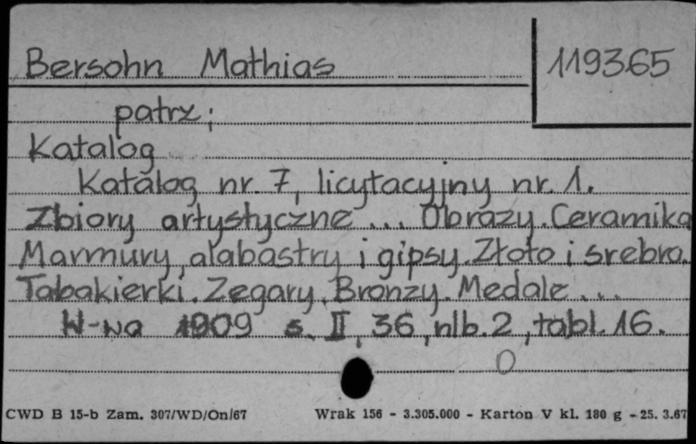 Bersohn Mathias
119365
patrz;
Katalog
Katalog nr. 7, licytacyjny nr. 1.
Zbiory artystyczne ... Obrazy. Ceramika
Marmury, alabastry i gipsy. Złoto i srebro.
Tabakierki. Zegary. Bronzy. Medale ...
W-wa 1909 s. II, 36, nlb. 2, tabl. 16.
0
CWD B 15-b Zam. 307/WD/On/67 Wrak 156 - 3.305.000 - Karton V kl. 180 g - 25. 3.67